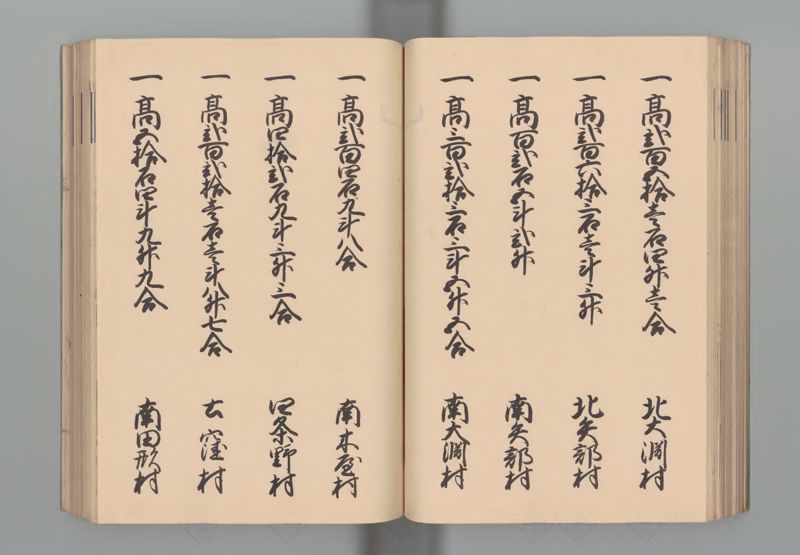 一 高弐百五拾壱石四升壱合 北大渕村
一 高弐百六拾三石壱斗三升 北矢部村
一 高百弐石五斗弐升 南矢部村
一 高三百弐拾三石三斗五升五合 南大渕村
一 高弐百四石九斗八合 南木屋村
一 高四拾弐石九斗三升三合 四条野村
一 高弐百弐拾壱石壱斗八升七合 土窪村
一 高五拾石四斗九升九合 南田形村